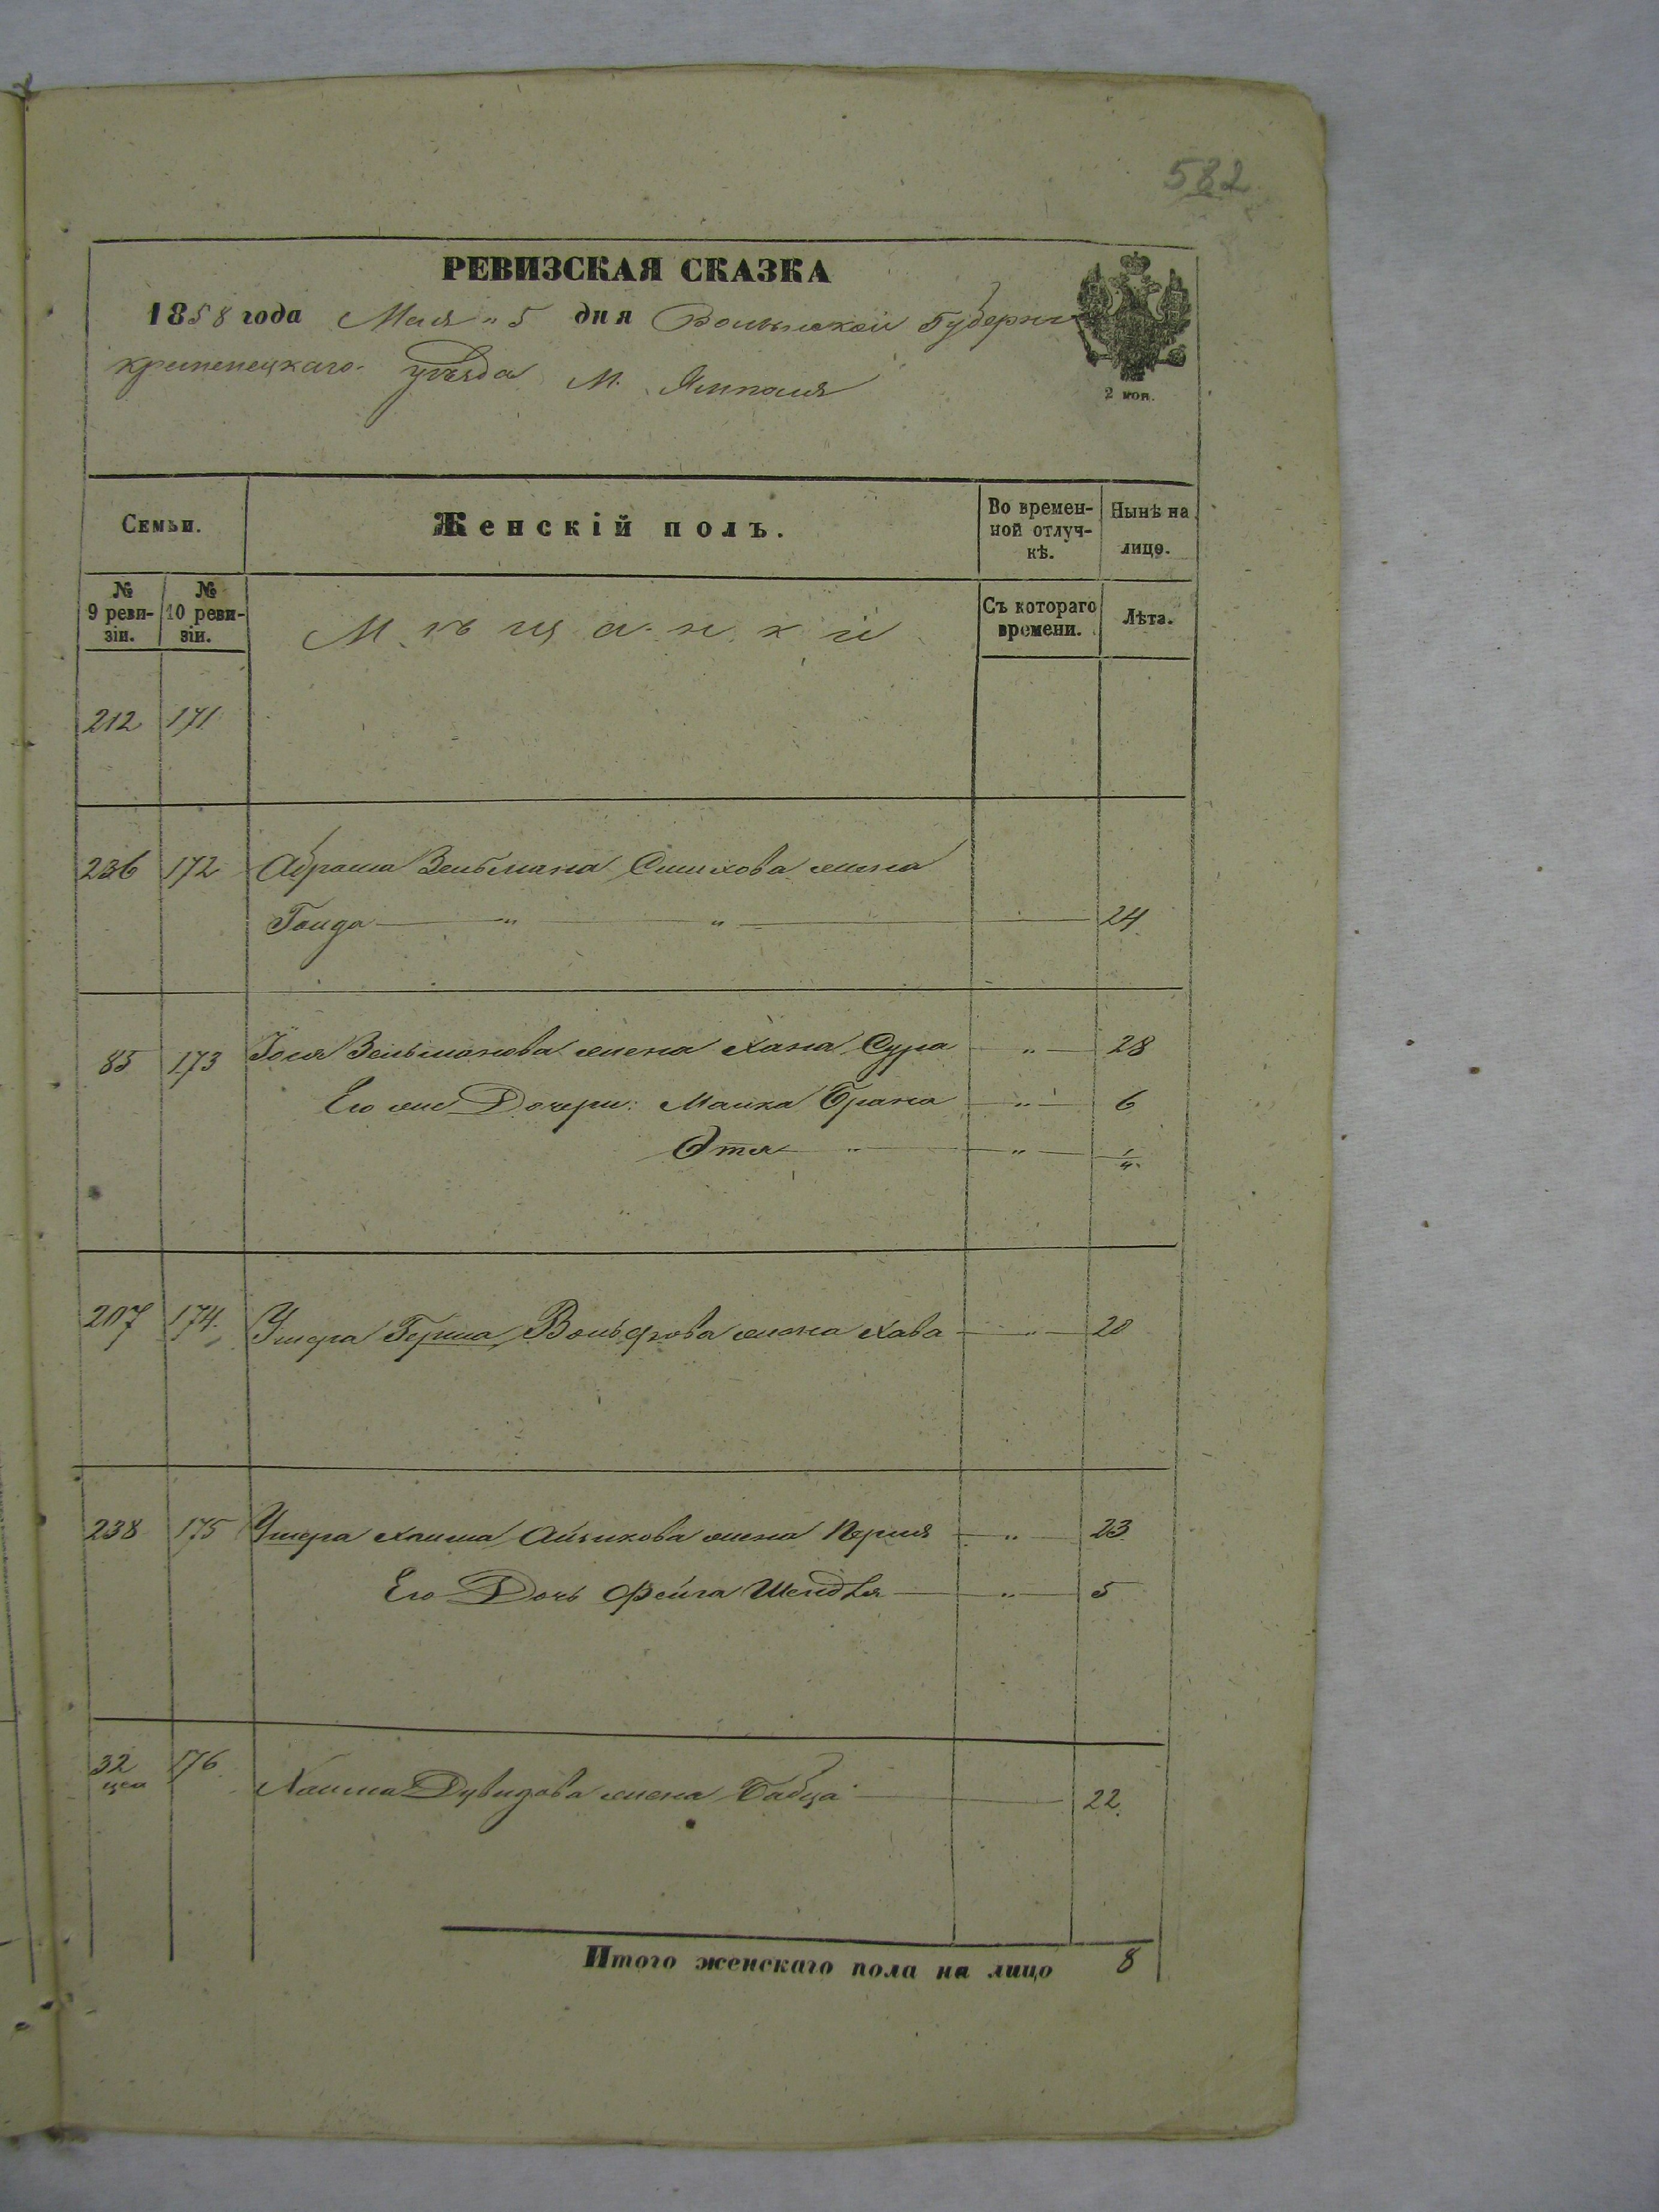 582
РЕВИЗСКАЯ СКАЗКА
1858 года Мая „ 5 дня Волынской Губерни
Кременецкаго уѣзда М. Ямполя
2 коп.
Семьи.
Женскій полъ.
Во времен-
ной отлуч-
кѣ.
Нынѣ на
лицо.
№
9 реви-
зіи.
№
10 реви-
зіи.
Мѣщанки
Съ котораго
времени.
Лѣта.
212 171
236 172 Абрама Зельмана Сmuлова жена
Гольда „ „ 24
85 173 Іося Зельманова жена Хана Сура „ 28
Его же Дочери: Малка Брана „ 6
Этя „ „ 1/4
207 174. Умера Герша Вольфова жена Хава „ 20
238 175 Умера Хаима Айзикова жена Перля „ 23
Его Дочь Фейга Шендля „ 5
32 176 Хаима Дувидова жена Бабца 22
Итого женскаго пола на лицо 8